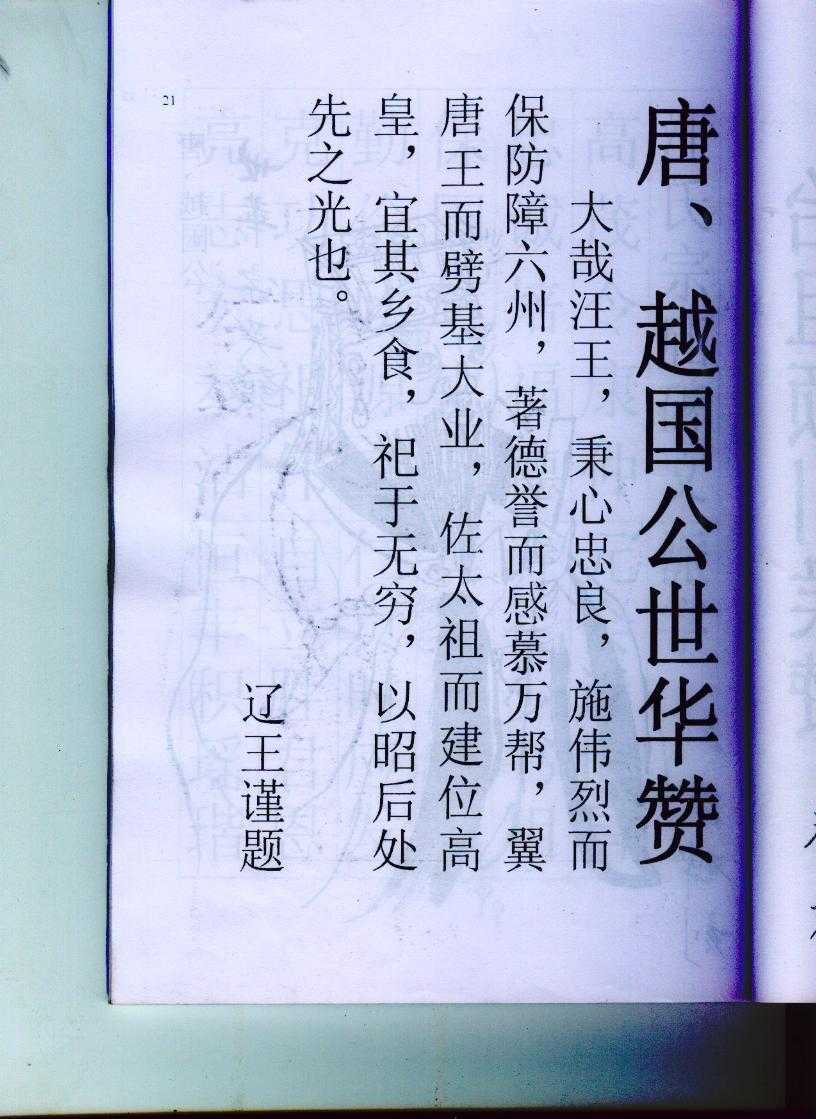 唐、越国公世华赞
大哉汪王，秉心忠良，施伟烈而
保防障六州，著德誉而感慕万帮，翼
唐王而劈基大业，佐太祖而建位高
皇，宜其乡食，祀于无穷，以昭后处
先之光也。
辽王谨题
21